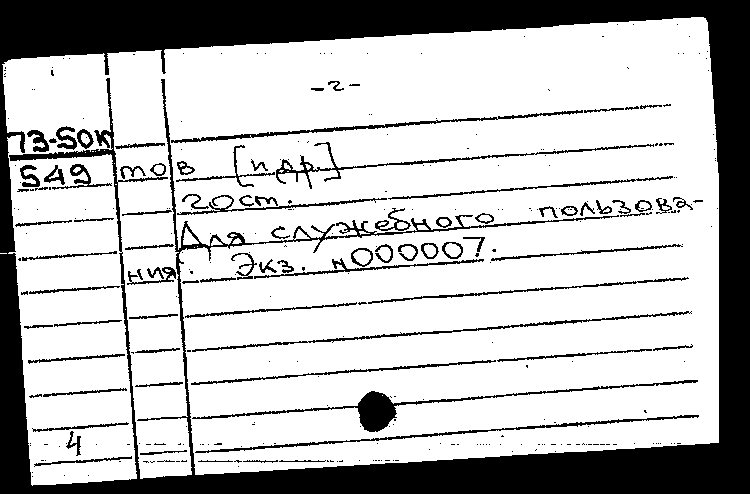 -2-
73-50к
549 тов [и др.]
20 ст.
Для служебного пользова-
ния. Экз. N000007.
4